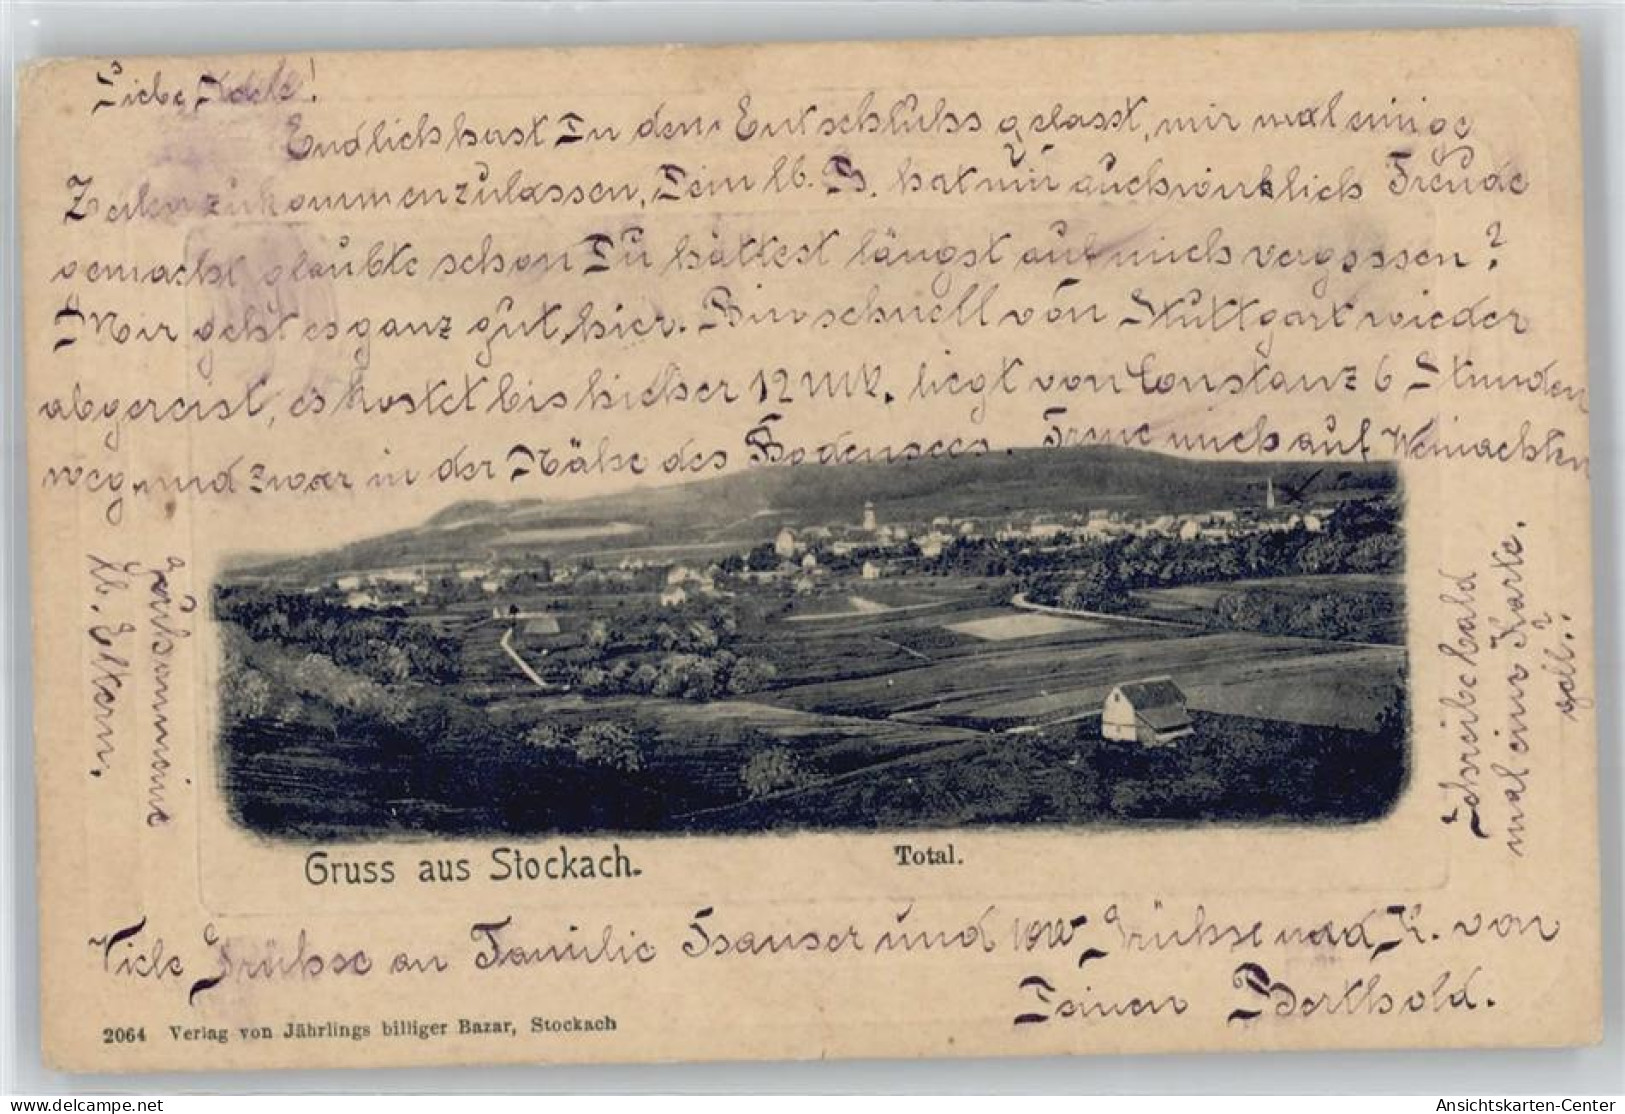 Liebe
Endlich hast Du den Entschluhs gefasst, mir mal einige
Zeilen zukommenzulassen, Dein lb. B. hat mir auch wirklich Freude
gemacht glaubte schon Du hättest längst auf mich vergessen?
Mir geht es ganz gut hier. Bin schnell von Stuttgart wieder
abgereist, es kostet bis hieher 12 Mk. liegt von Constanz 6 Stunden
weg, und zwar in der Nähe des Bodensees. Freue mich auf Weinachten
Lb. Eltern.
Schreibe bald
mal einer Karte.
gell.?
Gruss aus Stockach.
Total.
Viele Grühse an Familie Hauser und 1000 Grühse und K. von
Deinen Berthold.
2064 Verlag von Jährlings billiger Bazar, Stockach
www.delcampe.net
Ansichtskarten-Center